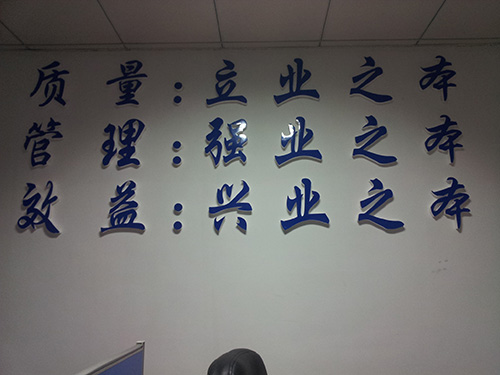 质量:立业之本
管理:强业之本
效益:兴业之本